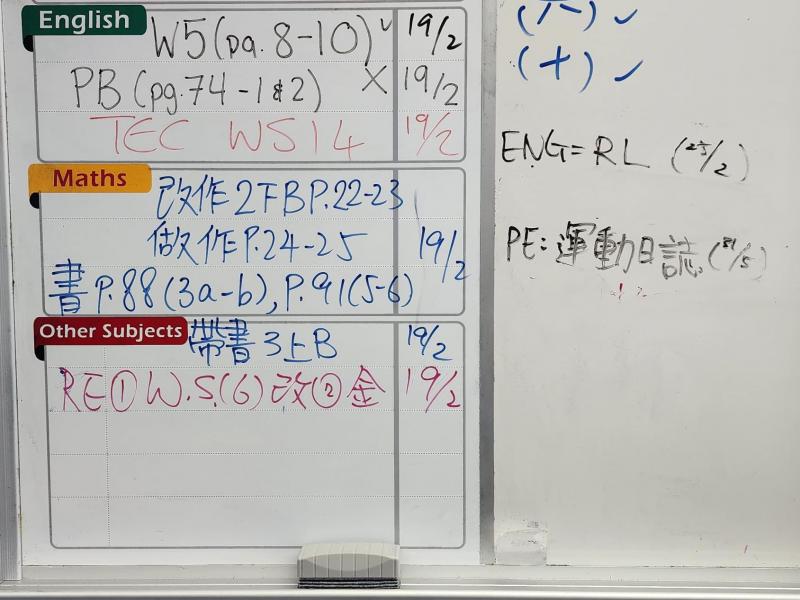 English
W5(pg.8-10)✓ 19/2
PB(pg.74-1&2) X 19/2
TEC WS14 19/2
Maths
改作2下BP.22-23
做作P.24-25 19/2
書P.88(3a-b),P.91(5-6)
Other Subjects
帶書3上B 19/2
RE①W.S.(6)改②金 19/2
(六)✓
(十)✓
ENG=RL (25/2)
PE:運動日誌(31/5)